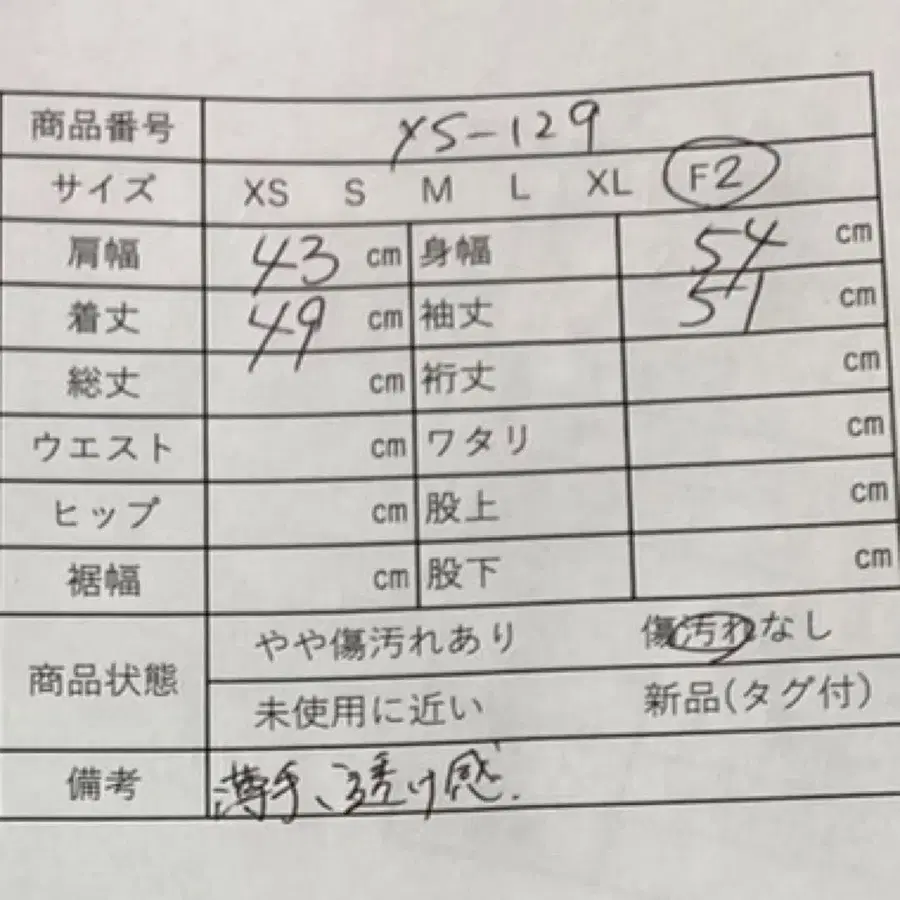 商品番号 YS-129
サイズ XS S M L XL F2
肩幅 43 cm 身幅 54 cm
着丈 49 cm 袖丈 51 cm
総丈 cm 裄丈 cm
ウエスト cm ワタリ cm
ヒップ cm 股上 cm
裾幅 cm 股下 cm
商品状態 やや傷汚れあり 傷汚れなし
未使用に近い 新品(タグ付)
備考 薄手、透け感.